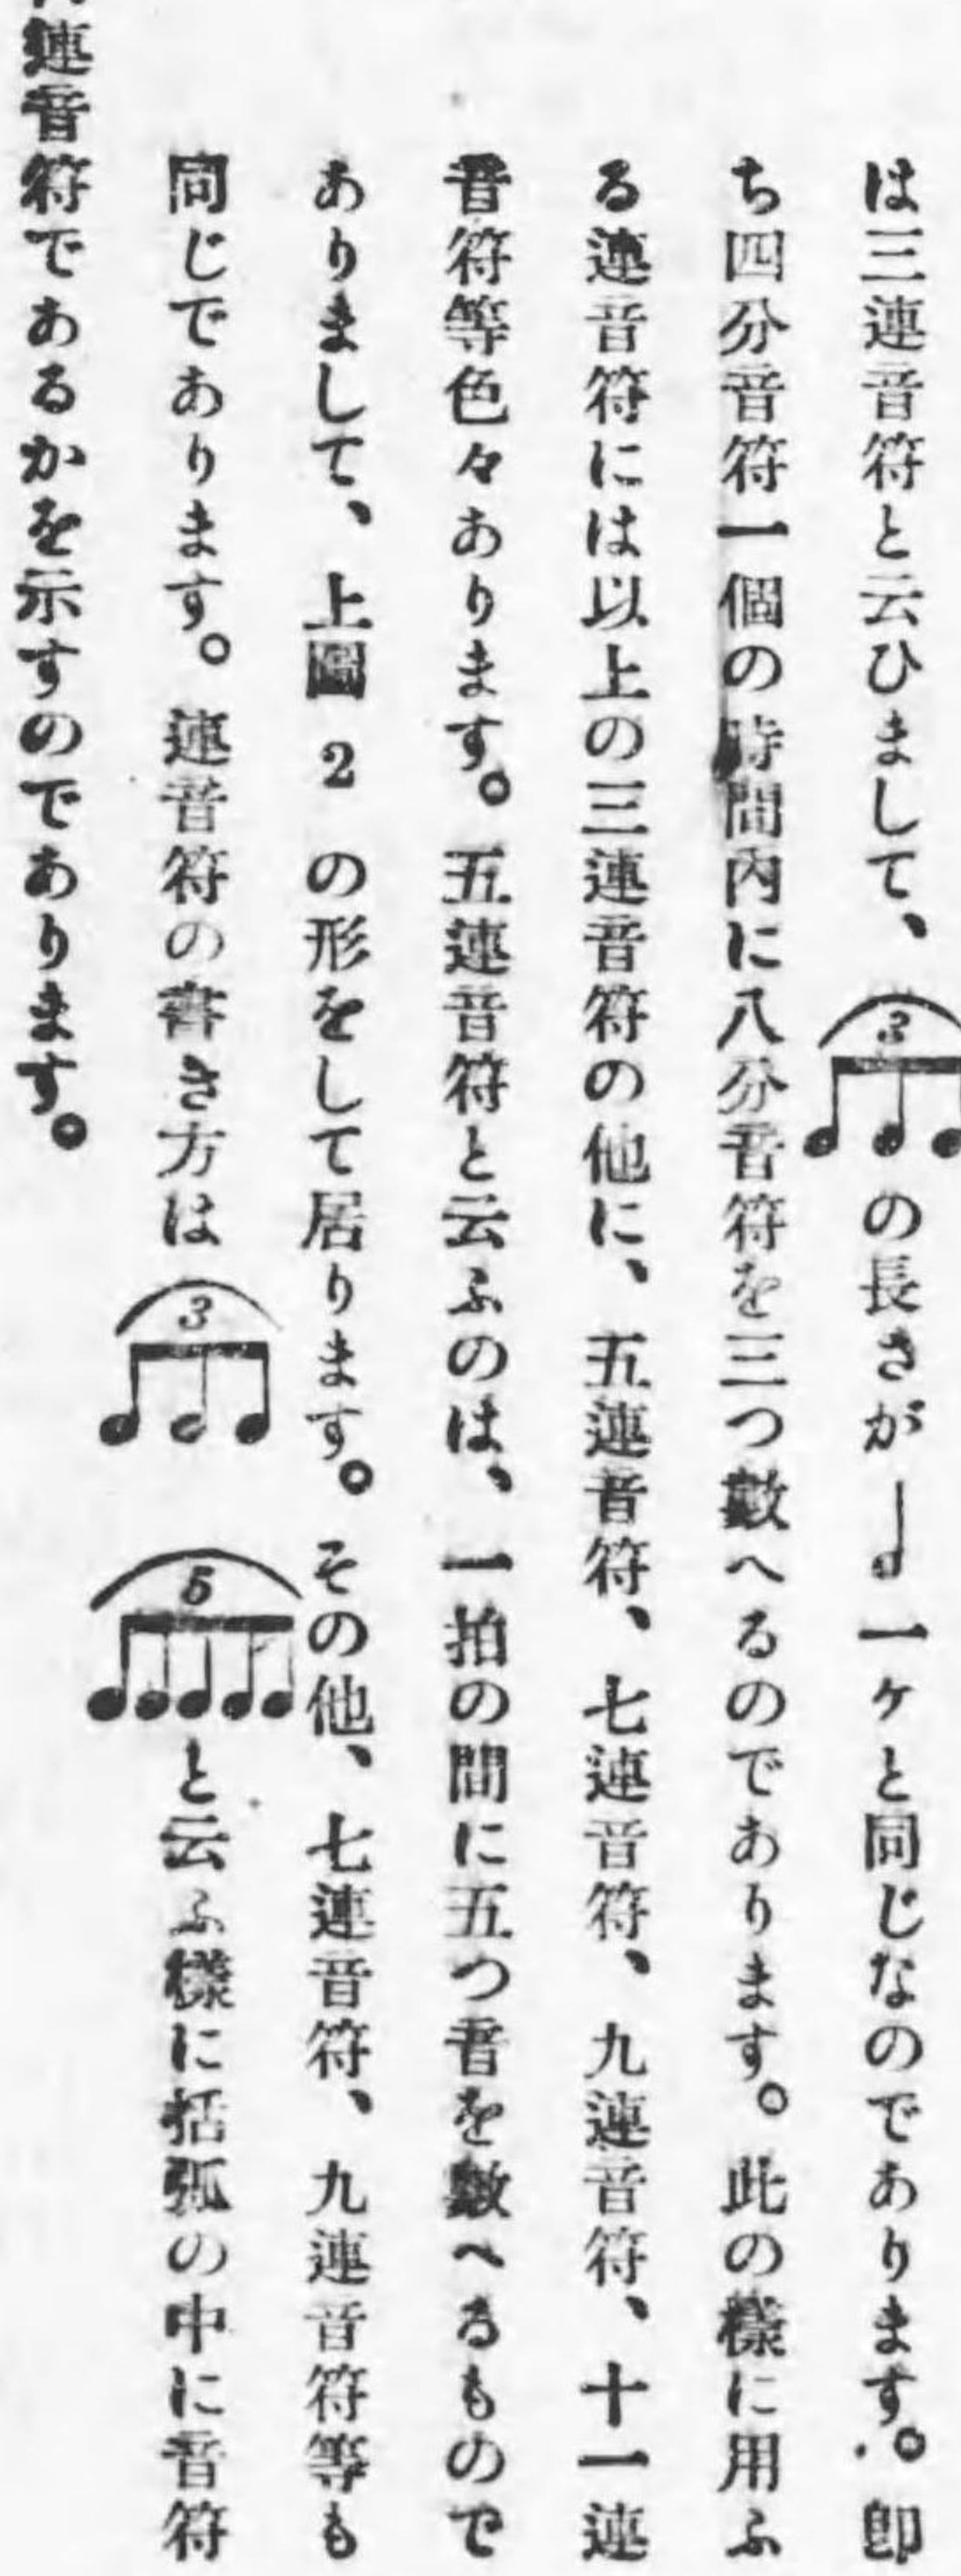 は三連音符と云ひまして、3の長さが一ヶと同じなのであります。卽
ち四分音符一個の時間內に八分音符を三つ數へるのであります。此の樣に用ふ
る連音符には以上の三連音符の他に、五連音符、七連音符、九連音符、十一連
音符等色々あります。五連音符と云ふのは、一拍の間に五つ音を數へるもので
ありまして、上圖2の形をして居ります。その他、七連音符、九連音符等も
同じであります。連音符の書き方は35と云ふ樣に括弧の中に音符
連音符であるかを示すのであります。